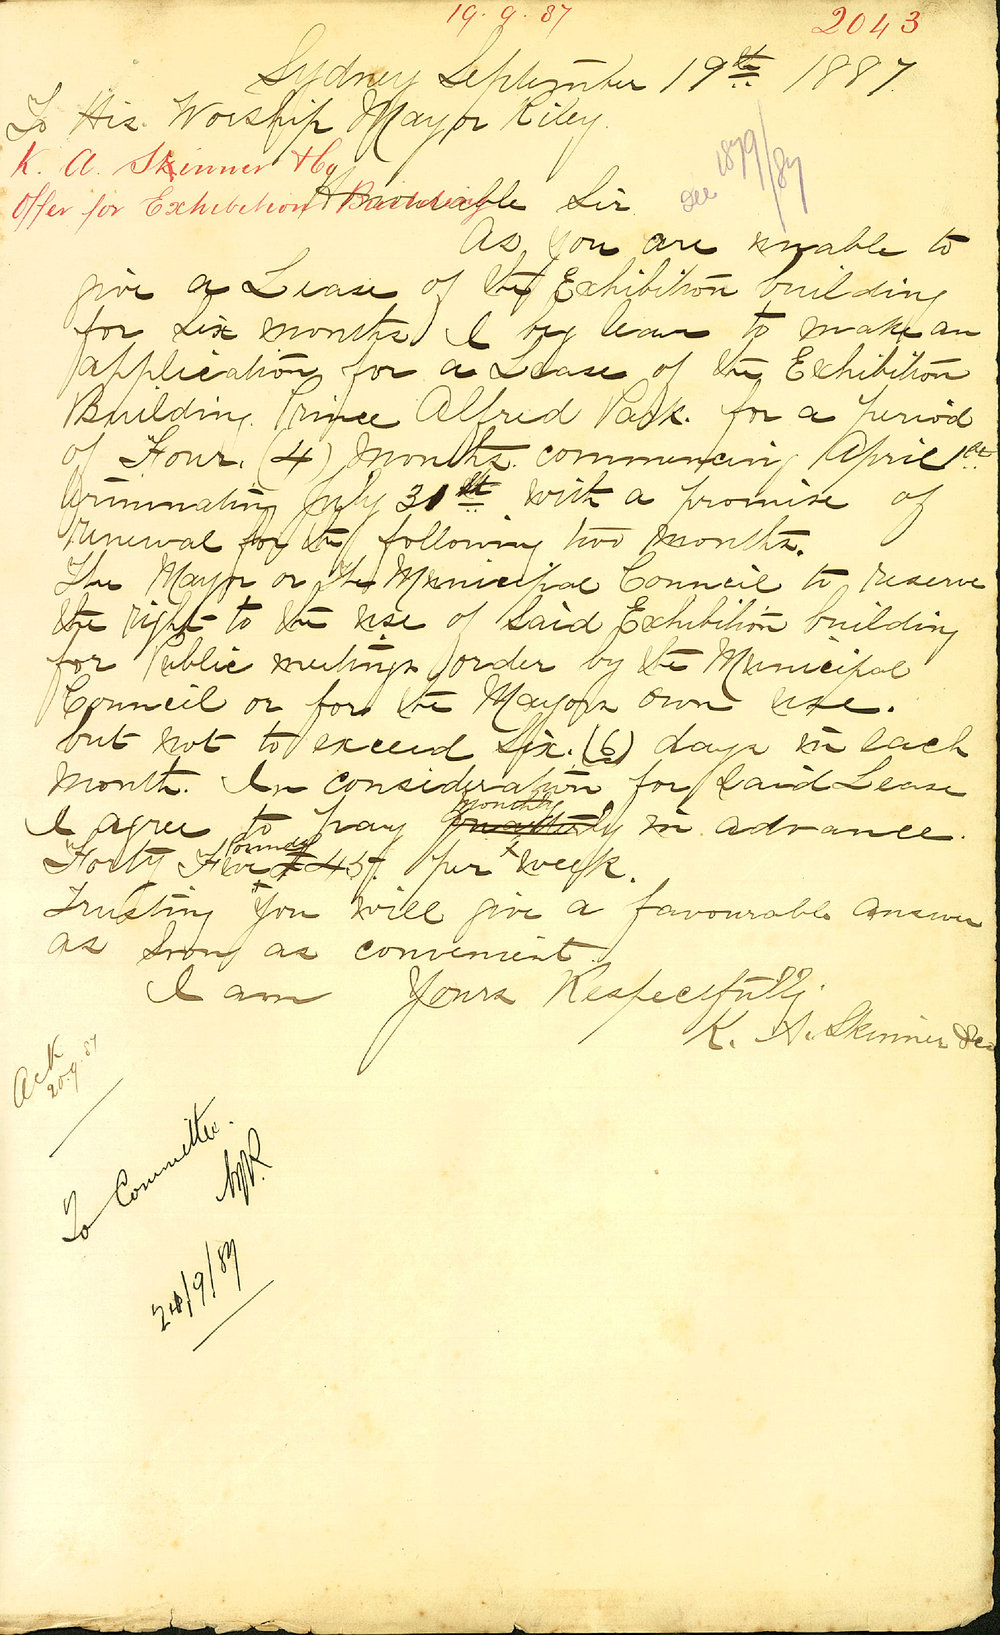 19. 9. 87
2043
Sydney September 19th 1887.
To His Worship Mayor Riley.
K. A. Skinner & Co
Offer for Exhibition Building
see 1879/87
Honorable Sir
As you are unable to
give a Lease of the Exhibition building
for Six months I beg leave to make an
application for a Lease of the Exhibition
Building Prince Alfred Park. for a period
of Four. (4) months. commencing April 1st
terminating July 31st with a promise of
renewal for the following two months.
The Mayor or the Municipal Council to reserve
the right to the use of Said Exhibition building
for Public meetings order by the Municipal
Council or for the Mayors own use.
but not to exceed Six. (6) days in each
month. In consideration for said Lease
monthly
I agree to pay quarterly in advance.
pounds
Forty Five £45 per week.
Trusting you will give a favourable answer
as soon as convenient.
I am Yours Respectfully.
K. A. Skinner & Co
Ack
20.9.87
To Committee.
AJR.
20/9/87